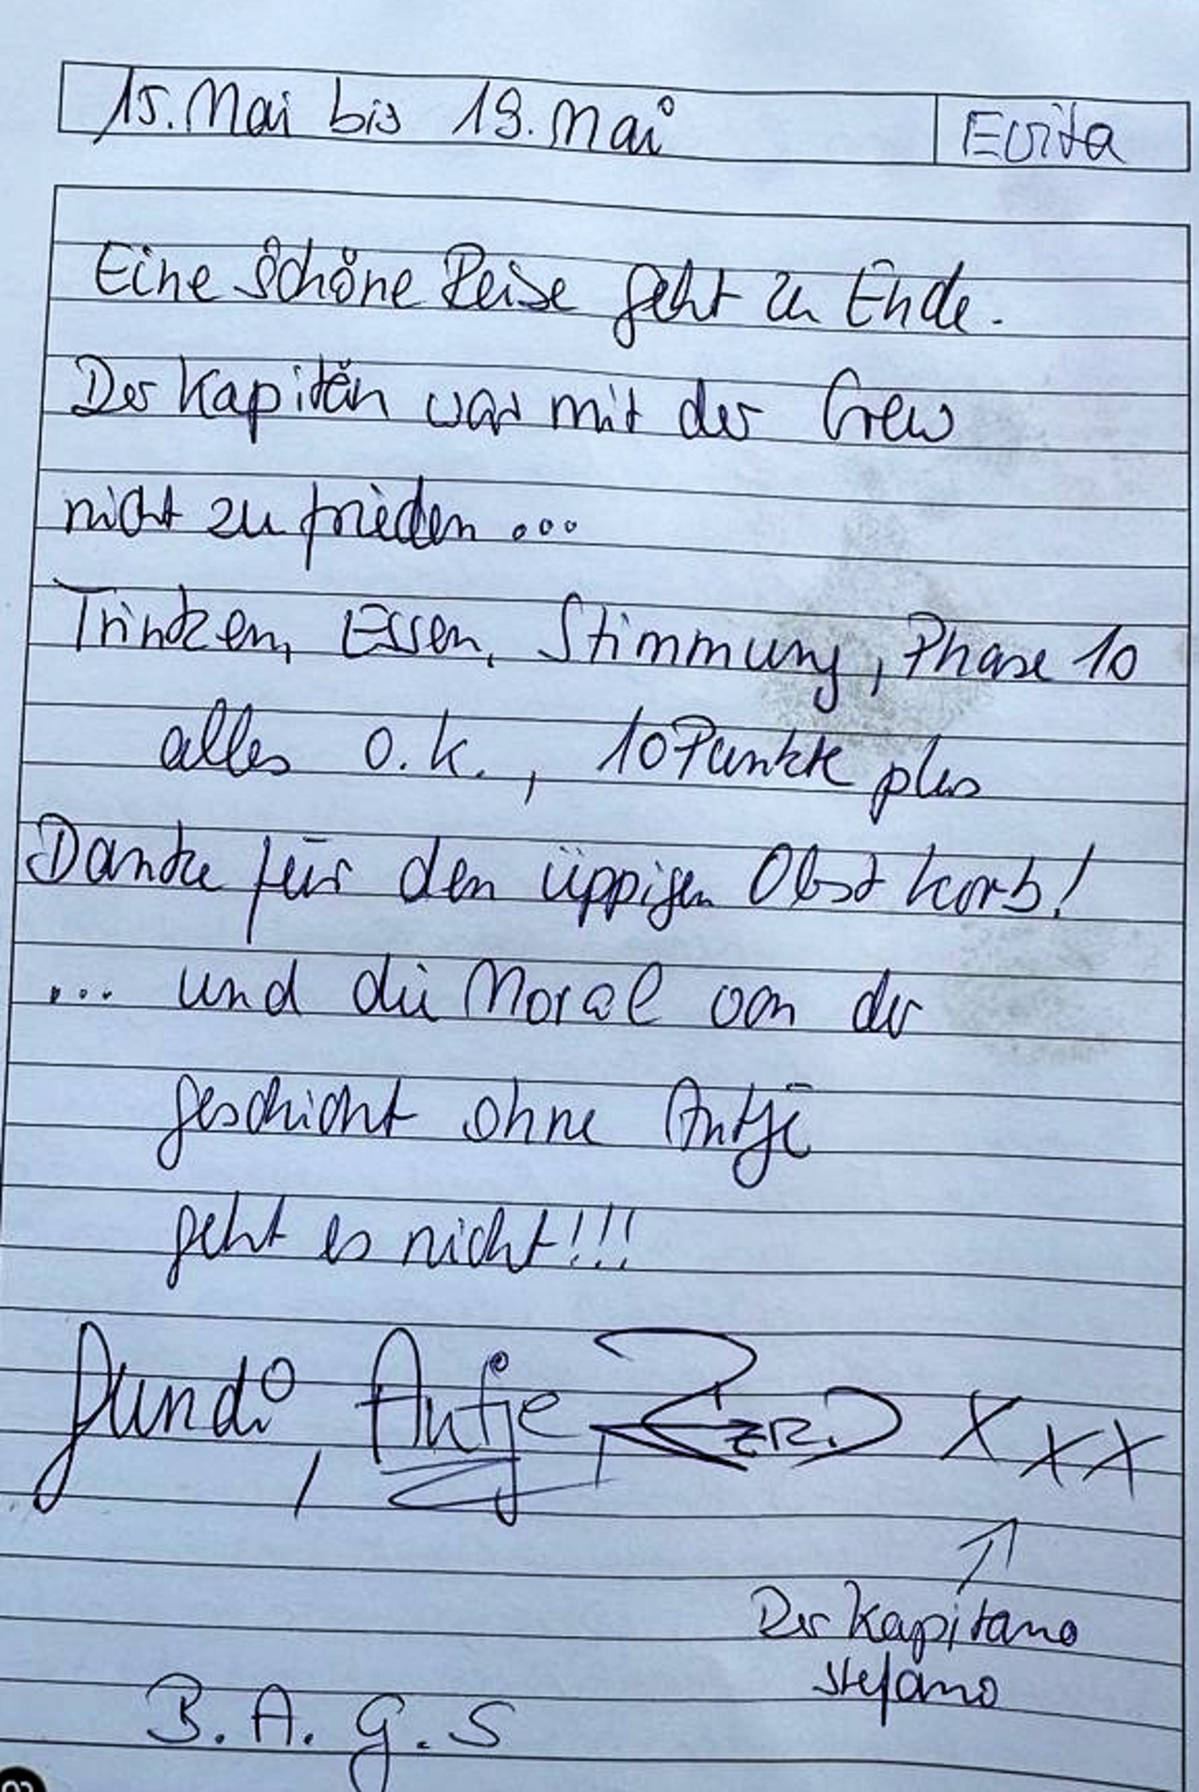 15. Mai bis 19. Mai
Evita
Eine schöne Reise geht zu Ende.
Der Kapitän war mit der Crew
nicht zu frieden ...
Trinken, Essen, Stimmung, Phase 10
alles o.k., 10 Punkte plus
Danke für den üppigen Obstkorb!
... und die Moral von der
geschicht ohne Antje
geht es nicht!!!
Gundi, Antje, XXX
Der Kapitano
Stefano
B. A. G. S